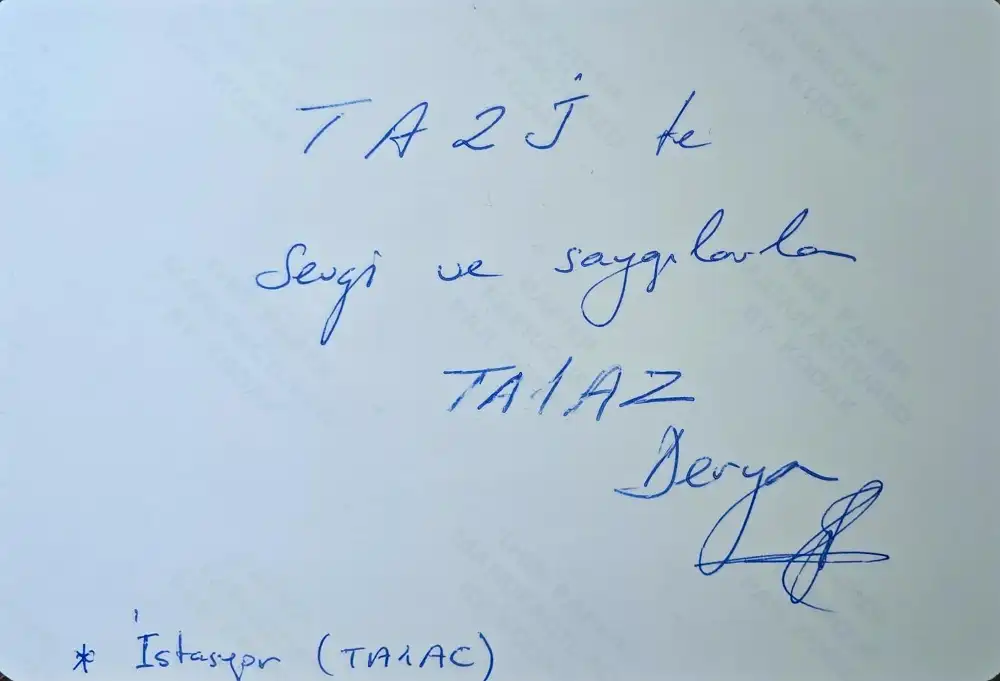 TA2J te
Sevgi ve saygılarla
TA1AZ
Derya
* İstasyon (TA1AC)